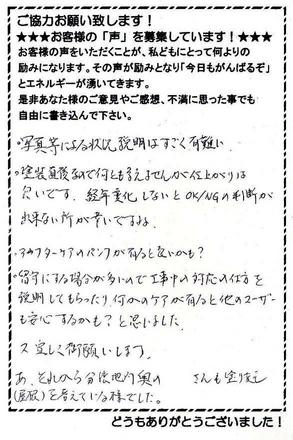 ご協力お願い致します！
★★★お客様の「声」を募集しています！★★★
お客様の声をいただくことが、私どもにとって何よりの
励みになります。その声が励みとなり「今日もがんばるぞ」
とエネルギーが湧いてきます。
是非あなた様のご意見やご感想、不満に思った事でも
自由に書き込んで下さい。
・写真等による状況説明はすごく有難い。
・塗装直後なので何とも言えませんが仕上がりは
良いです。経年変化しないとOK/NGの判断が
出来ない所が辛いですよね。
・アフターケアのパンフが有ると良いかも？
・留守にする場合が多いので工事中の対応の仕方を
説明してもらったり何かのケアが有ると他のユーザー
も安心するかも？と思いました。
宜しく御願いします。
あ、それから分譲地内奥の　　さんも塗り
(屋根)を考えている様でした。
どうもありがとうございました！